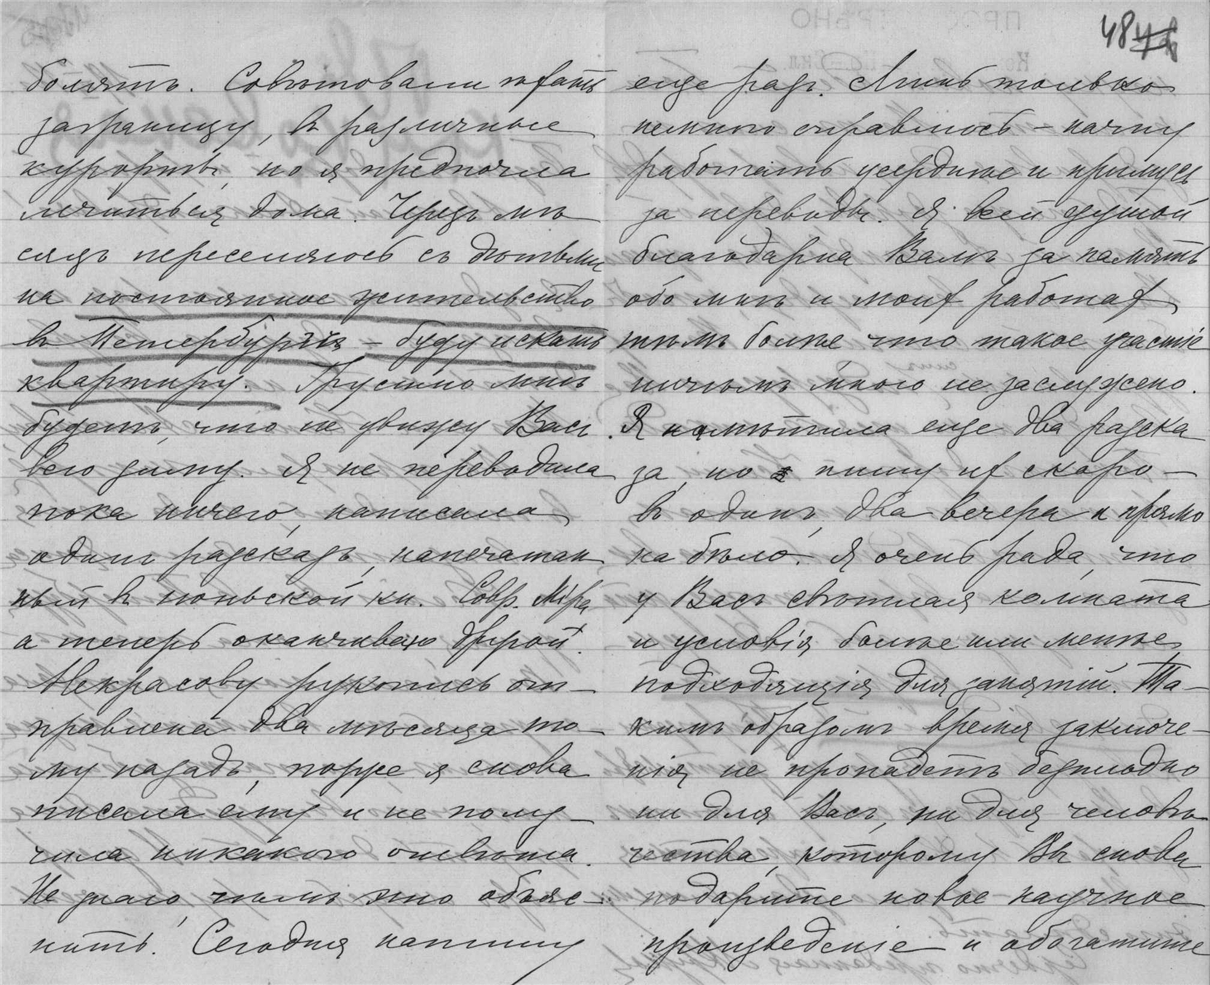 болятъ. Совѣтовали ѣхать
заграницу, въ различные
курорты, но я предпочла
лечиться дома. Черезъ мѣ-
сяцъ переселяюсь съ дѣтьми
на постоянное жительство
въ Петербургъ – буду искать
квартиру. Грустно мнѣ
будетъ, что не увижу Васъ
всю зиму. Я не переводила
пока ничего, написала
одинъ разсказъ, напечатан
ный въ июньской кн. Совр. Міра
а теперь оканчиваю другой.
Некрасову рукопись от-
правлена два мѣсяца то-
му назадъ, позже я снова
писала ему и не полу-
чила никакого отвѣта.
Не знаю, чѣмъ это объяс-
нить. Сегодня напишу
48
еще разъ. Лишь только
немного оправлюсь – начну
работать усерднѣе и примусь
за переводы. Я всей душой
благодарна Вамъ за память
обо мнѣ и моихъ работахъ
тѣмъ болѣе что такое участіе
ничѣмъ мною не заслужено.
Я намѣтила еще два разска
за, но пишу их скоро –
въ одинъ, два вечера и прямо
на бѣло. Я очень рада, что
у Васъ свѣтлая комната
и условія болѣе или менѣе
подходящія для занятій. Та-
кимъ образомъ время заключе-
нія не пропадетъ безплодно
ни для Васъ, ни для человѣ
чества, которому Вы снова
подарите новое научное
произведеніе и обогатите